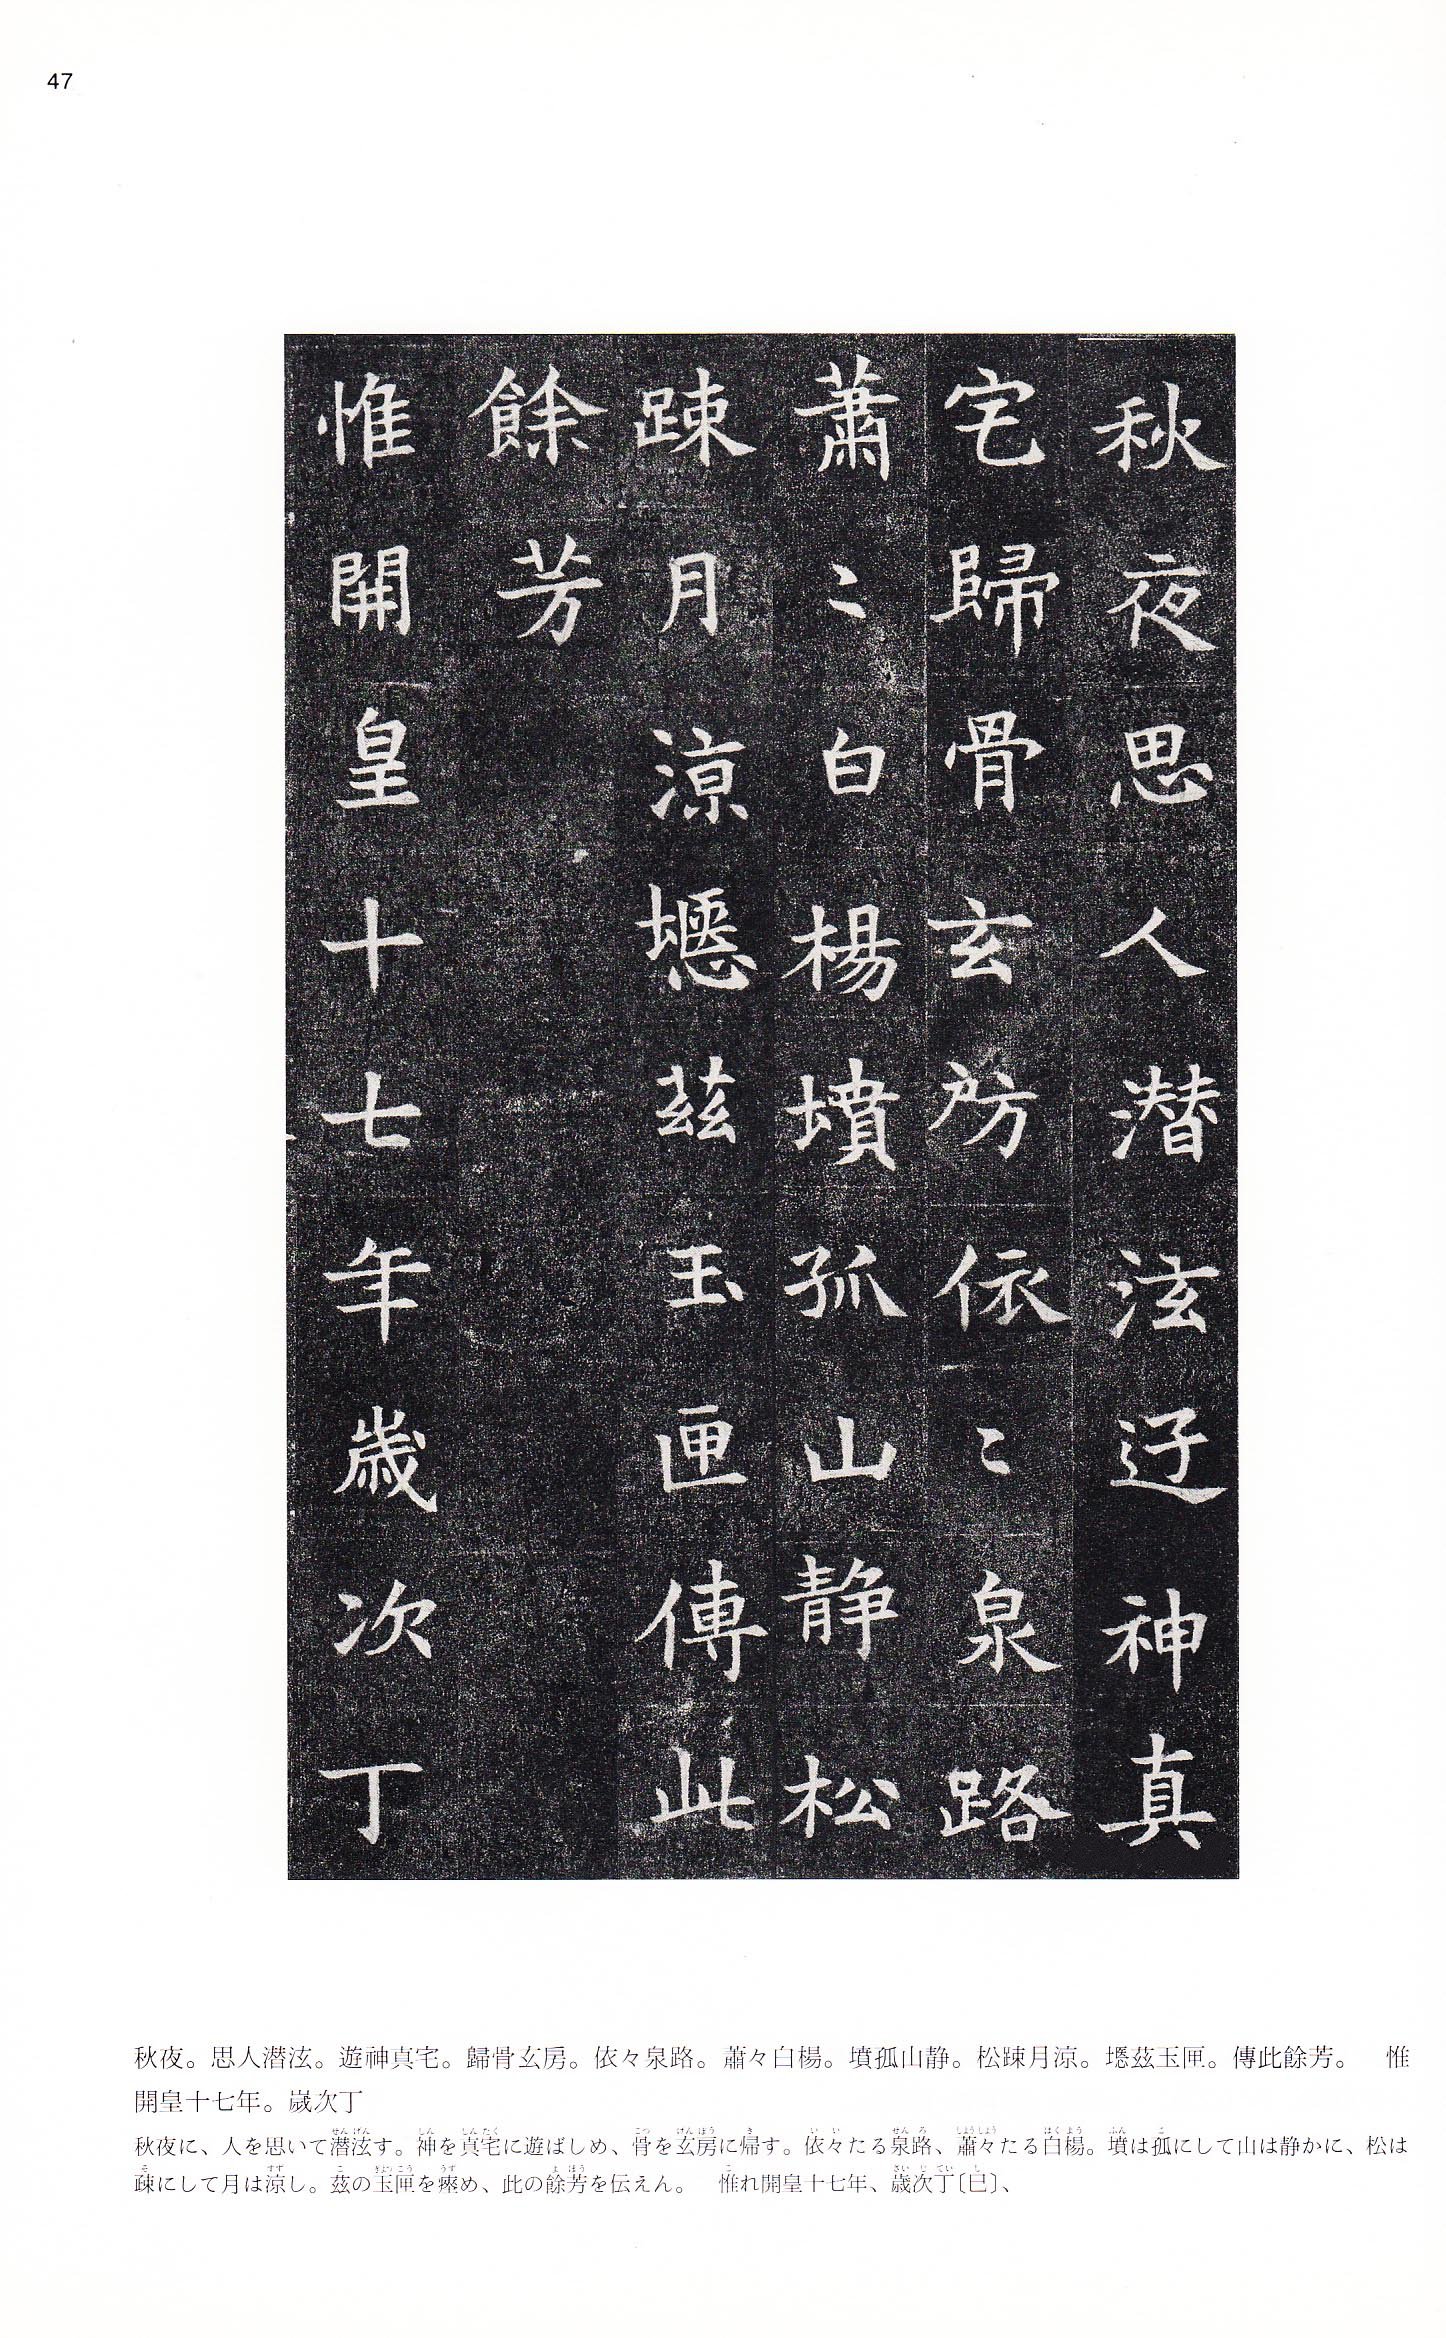 47
秋夜思人潜泫迂神真
宅歸骨玄房依〻泉路
蕭〻白楊墳孤山静松
踈月涼壜茲玉匣傳此
餘芳
惟開皇十七年歲次丁
秋夜。思人潜泫。遊神真宅。歸骨玄房。依々泉路。蕭々白楊。墳孤山静。松踈月涼。茲玉匣。傳此餘芳。　惟
開皇十七年。嵗次丁
秋夜に、人を思いて潜泫す。神を真宅に遊ばしめ、骨を玄房に帰す。依々たる泉路、蕭々たる白楊。墳は孤にして山は静かに、松は
疎にして月は涼し。茲の玉匣を瘞め、此の餘芳を伝えん。　惟れ開皇十七年、歳次丁〔巳〕、